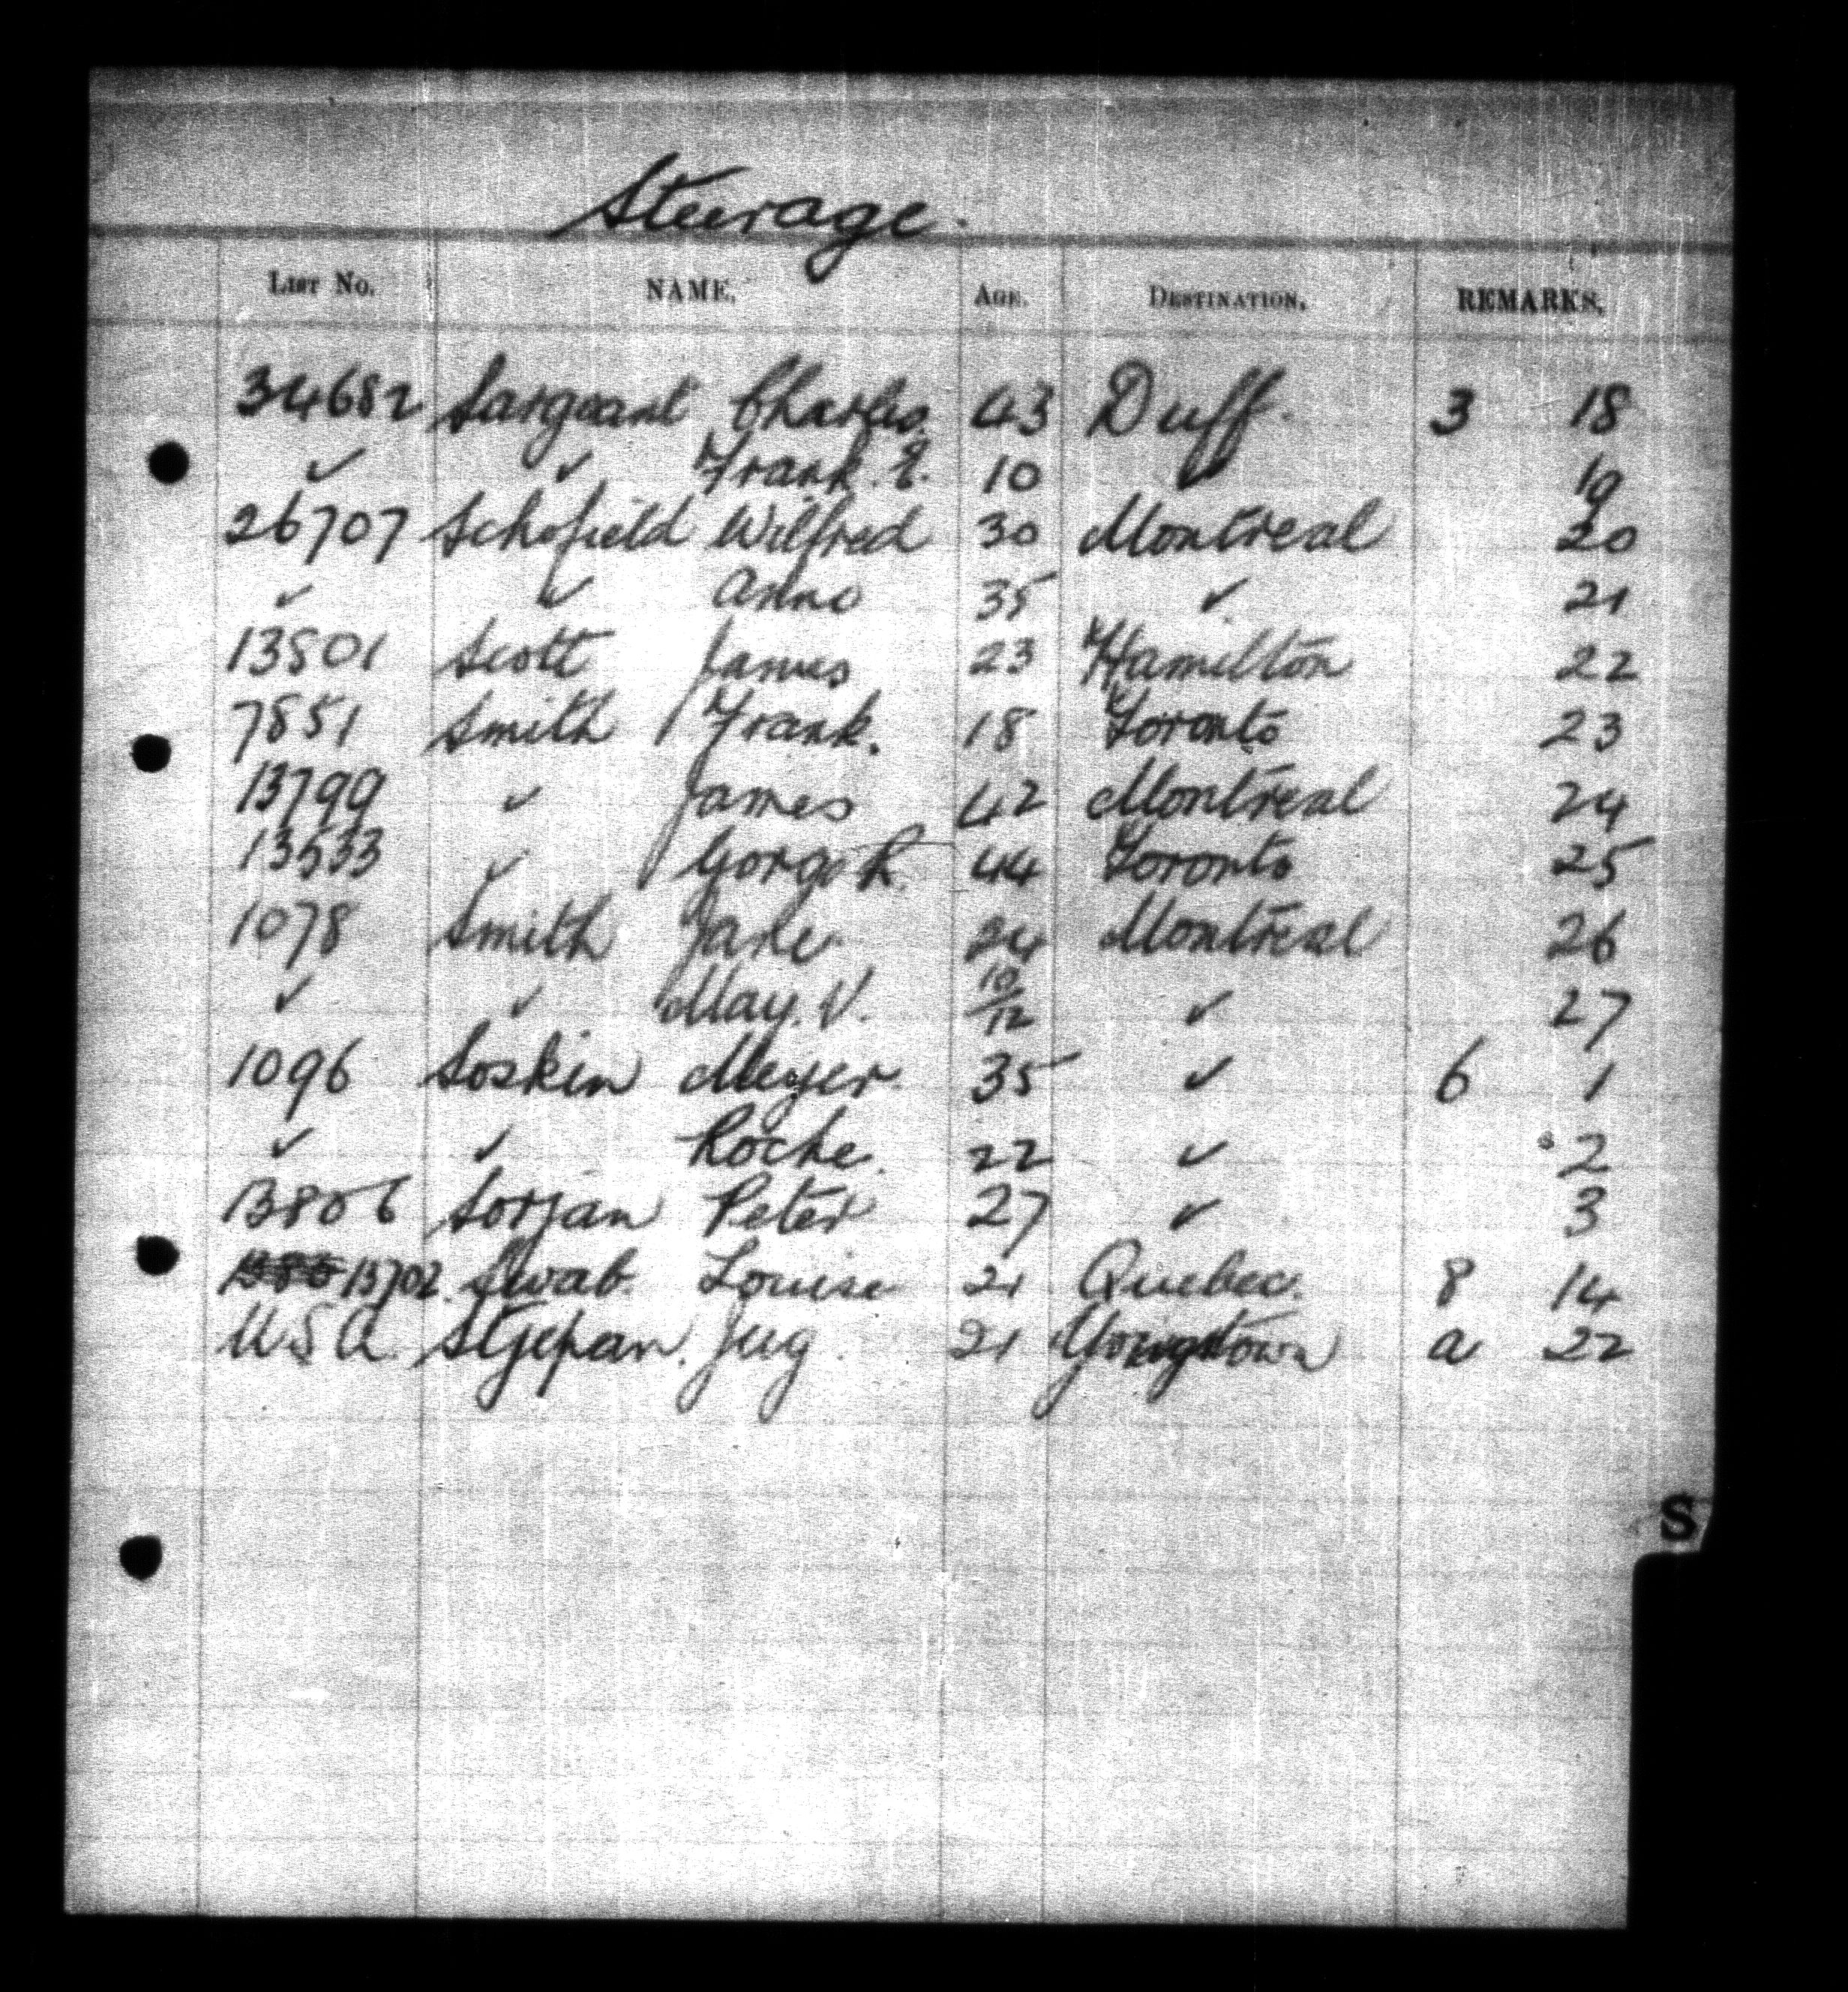 Steerage.
LIST No. NAME. AGE. DESTINATION. REMARKS.
34682 Sargeant Charles. 43 Duff. 3 18
✓ ✓ Frank. E. 10 ✓ 19
26707 Schofield Wilfred 30 Montreal 20
✓ ✓ Anne 35 ✓ 21
13501 Scott James 23 Hamilton 22
7851 Smith Frank. 18 Toronto 23
13799 ✓ James 42 Montreal 24
13533 ✓ Gorge R. 44 Toronto 25
1078 Smith Jane 24 Montreal 26
✓ ✓ May. V. 10/12 ✓ 27
1096 Soskin Meyer 35 ✓ 6 1
✓ ✓ Roche. 22 ✓ 2
13806 Sorjan Peter 27 ✓ 3
13702. Swab. Louise 21 Quebec. 8 14
U S A Stjepan. Jug. 21 Youngstown a 22
S